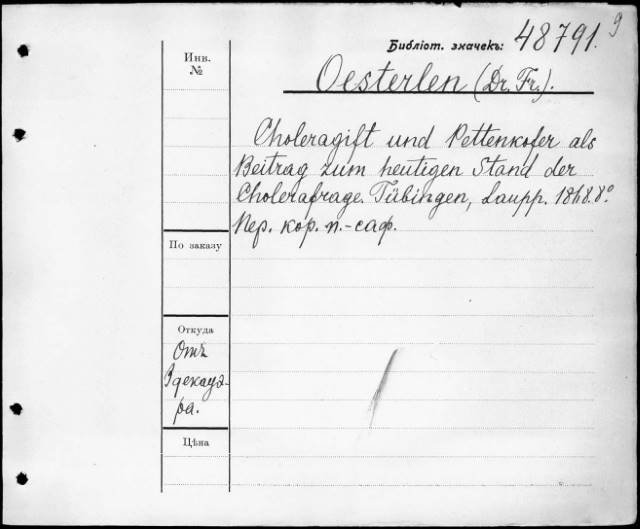 Библіот. значекъ: 48791. 9
Инв.
№
Oesterlen (Dr. Fr.).
Choleragift und Pettenkofer als
Beitrag zum heutigen Stand der
Cholerafrage. Tübingen, Laupp. 1868. 8°
Пер. кор. п.-саф.
По заказу
Откуда
Отъ
Здекауэ-
ра.
Цѣна